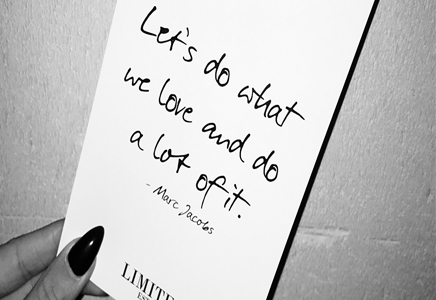 Let's do what
we love and do
a lot of it.
- Marc Jacobs